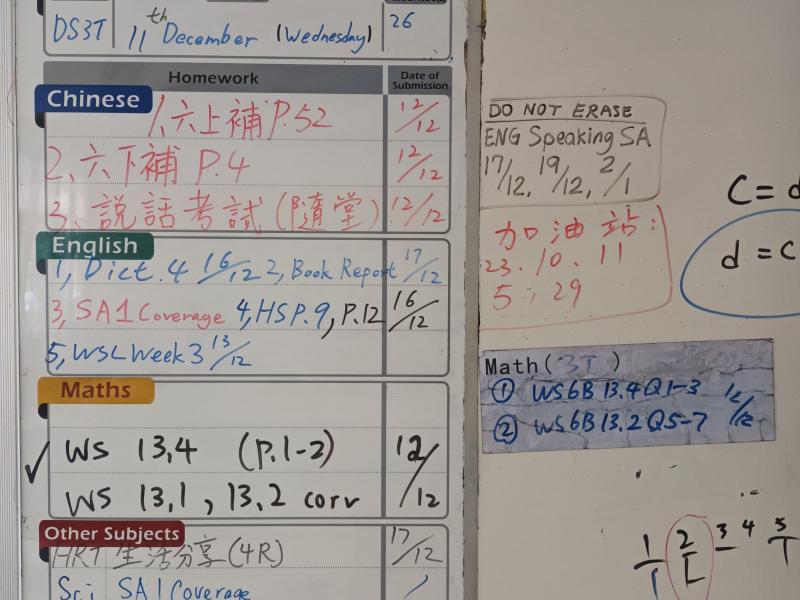 DS3T 11th December (Wednesday) 26
Homework Date of Submission
Chinese
1、六上補 P.52 12/12
2、六下補 P.4 12/12
3、說話考試 (隨堂) 12/12
English
1, Dict. 4 16/12 2, Book Report 17/12
3, SA1 Coverage 4, HS P.9, P.12 16/12
5, WSL Week 3 13/12
Maths
✓ WS 13,4 (P.1-2) 12/12
WS 13,1, 13,2 corr
Other Subjects
HRT 生活分享(4R) 17/12
Sci SA1 Coverage
DO NOT ERASE
ENG Speaking SA
17/12, 19/12, 2/1
加油站:
23、10、11
5、29
Math(3T)
① WS6B 13.4 Q1-3 12/12
② WS6B 13.2 Q5-7
C = d
d = C
1 2 3 4 5